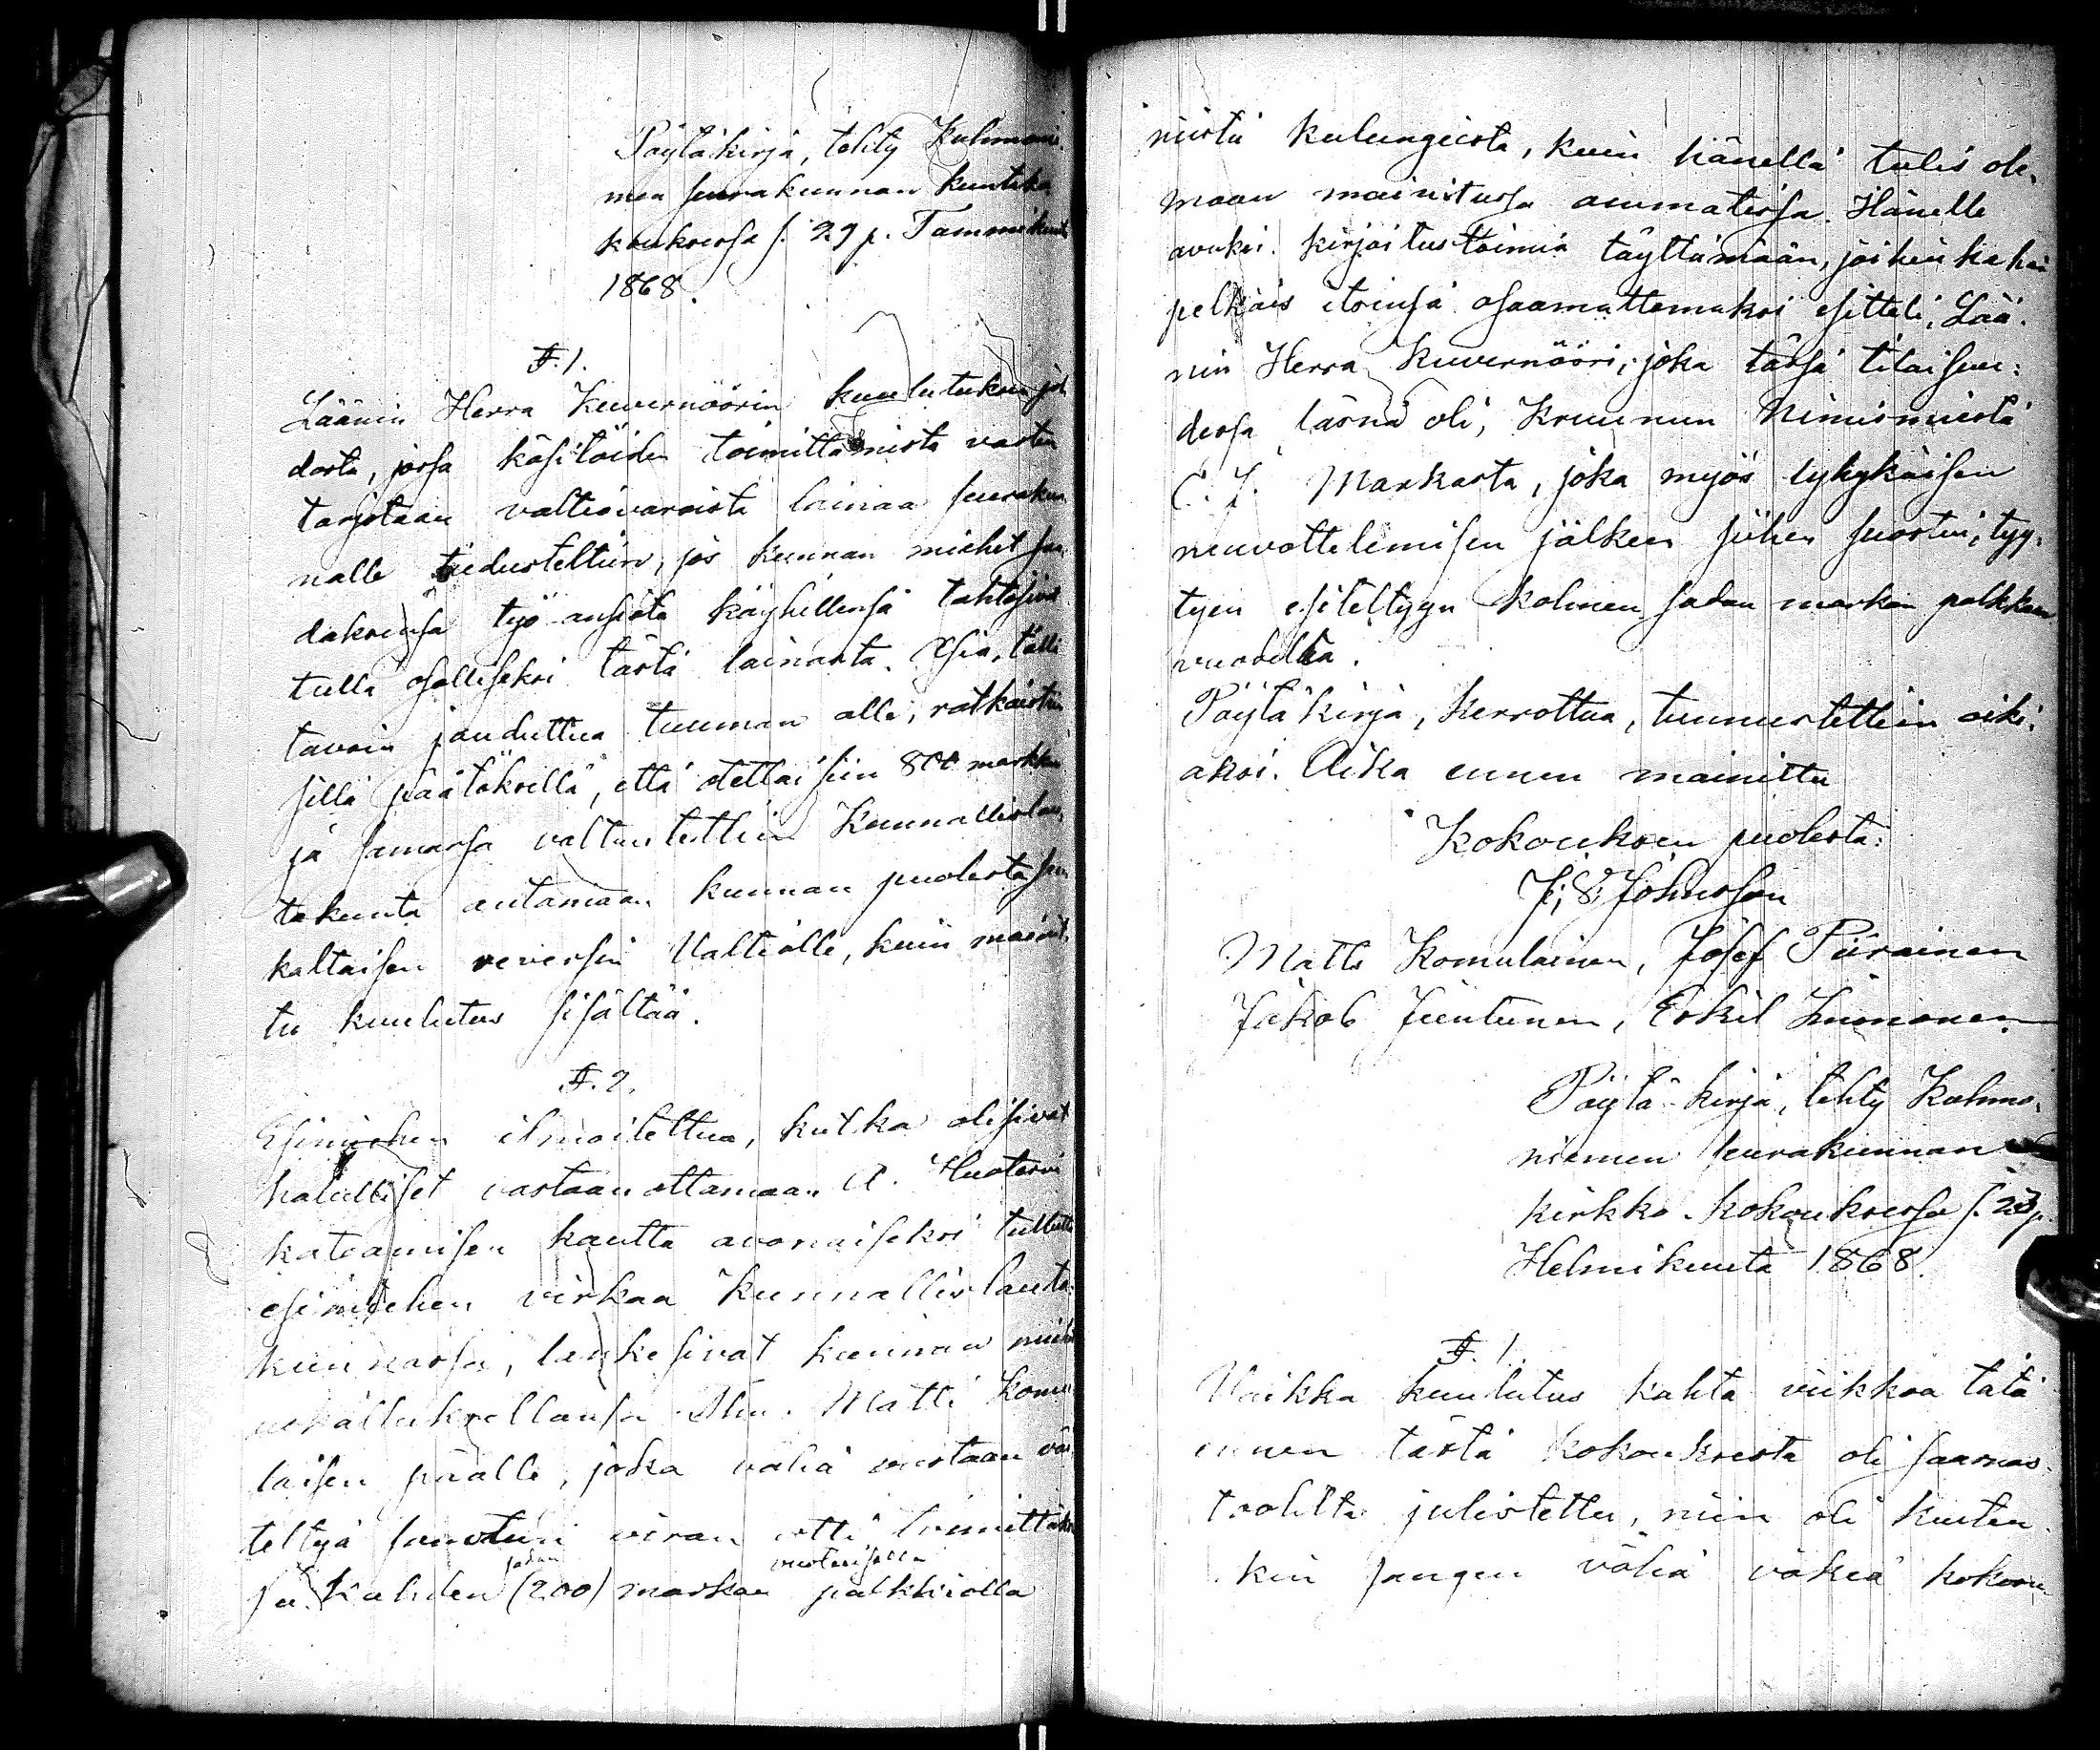 Pöytäkirja, tehty Kuhmoni-
men seurakunnan kuntako-
kouksessa s. 29 p. Tammikuut
1868.
§. 1.
Läänin Herra Kuvernöörin kuulutuksen joh-
dosta, jossa käsitöiden toimittamista vasten
tarjotaan valtiovaroista lainaa seurakun-
nalle tiedusteltiin, jos kunnan miehet saa-
daksensa työ ansiota köyhillensä tahtosivat
tulla osalliseksi tästä lainasta. Asia, tälli
tavoin jouduttua tuuman alle, ratkaistiin
sillä päätöksellä, että otettaisiin 800 markka
ja samassa valtuutettiin Kunnallislau-
takunta antamaan kunnan puolesta sen
kaltaisen reversin Valtiolle, kuin mainit-
tu kuulutus sisältää.
§. 2.
Esimiehen ilmoitettua, kutka olisivat
halulliset vastaanottamaan A. Huotarin
kateamisen kautta avonaiseksi tullutta
esimiehen virkaa kunnallislauta-
kunnassa, laukesivat kunnan miehet
Matti Komu-
laisen päälle, joka vähä vastaan väi-
teltyä suostui viran otti toimittaks
sa Kahden sadan (200) markan vuotuisella palkkiolla
niistä kulungiista, kuin hänellä tulis ole-
maan mainitussa ammatissa. Hänelle
avuksi kirjoitustoimia täyttämään, joihin ka hän
pelkäis itsensä osaamattomaksi esitteli, Lää-
nin Herra Kuvernööri, joka tässä tilaisuu-
dessa läsnä oli, Kruunun Nimismiestä
C. J. Markasta, joka myös lyhykäisen
neuvottelemisen jälkeen siihen suostui, tyy-
tyen esiteltyyn kolmen sadan markan palkkaan
vuodelta.
Pöytäkirja, kerrottua, tunnustettiin oiki-
aksi. Aika ennen mainittu
Kokouksen puolesta:
J. F. Johnsson
Matts Komulainen, Josef Piirainen
Jakob Juntunen, Eskil
Pöytä-kirja, tehty Kuhmo-
niemen seurakunnan
kirkko-kokouksessa s. 23 p.
Helmikuuta 1868.
§. 1.
Vaikka kuulutus kahta viikkoa tätä
ennen tästä kokouksesta oli saarnas-
tuolilta julistettu, niin oli kuiten-
kin sangen vähä väkeä kokoon